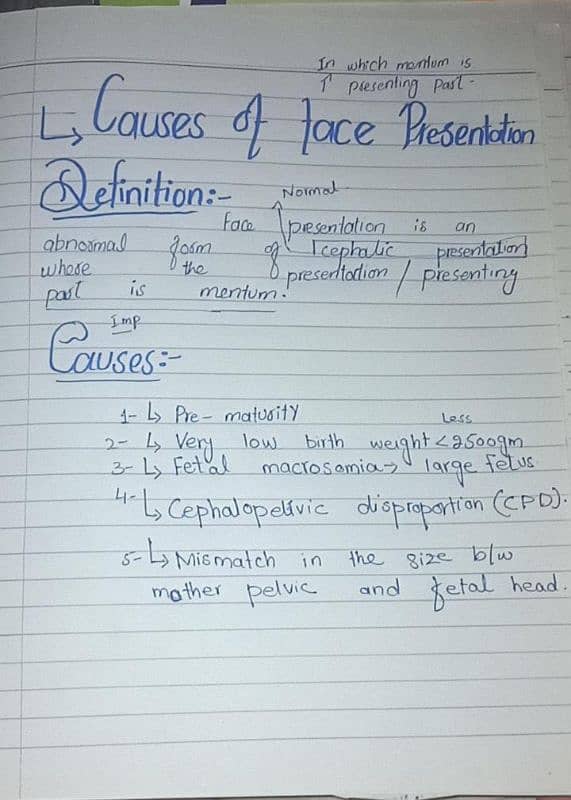 In which mentum is
↑ presenting Part -
↳ Causes of face Presentation
Definition:-
Normal
Face presentation is an
abnormal form of cephalic presentation
whose the presentation / presenting
part is mentum.
Imp
Causes:-
1- ↳ Pre-maturity
Less
2- ↳ Very low birth weight < 2500gm
3- ↳ Fetal macrosomia → large fetus
4- ↳ Cephalopelivic disproportion (CPD).
5- ↳ Mismatch in the size b/w
mother pelvic and fetal head.